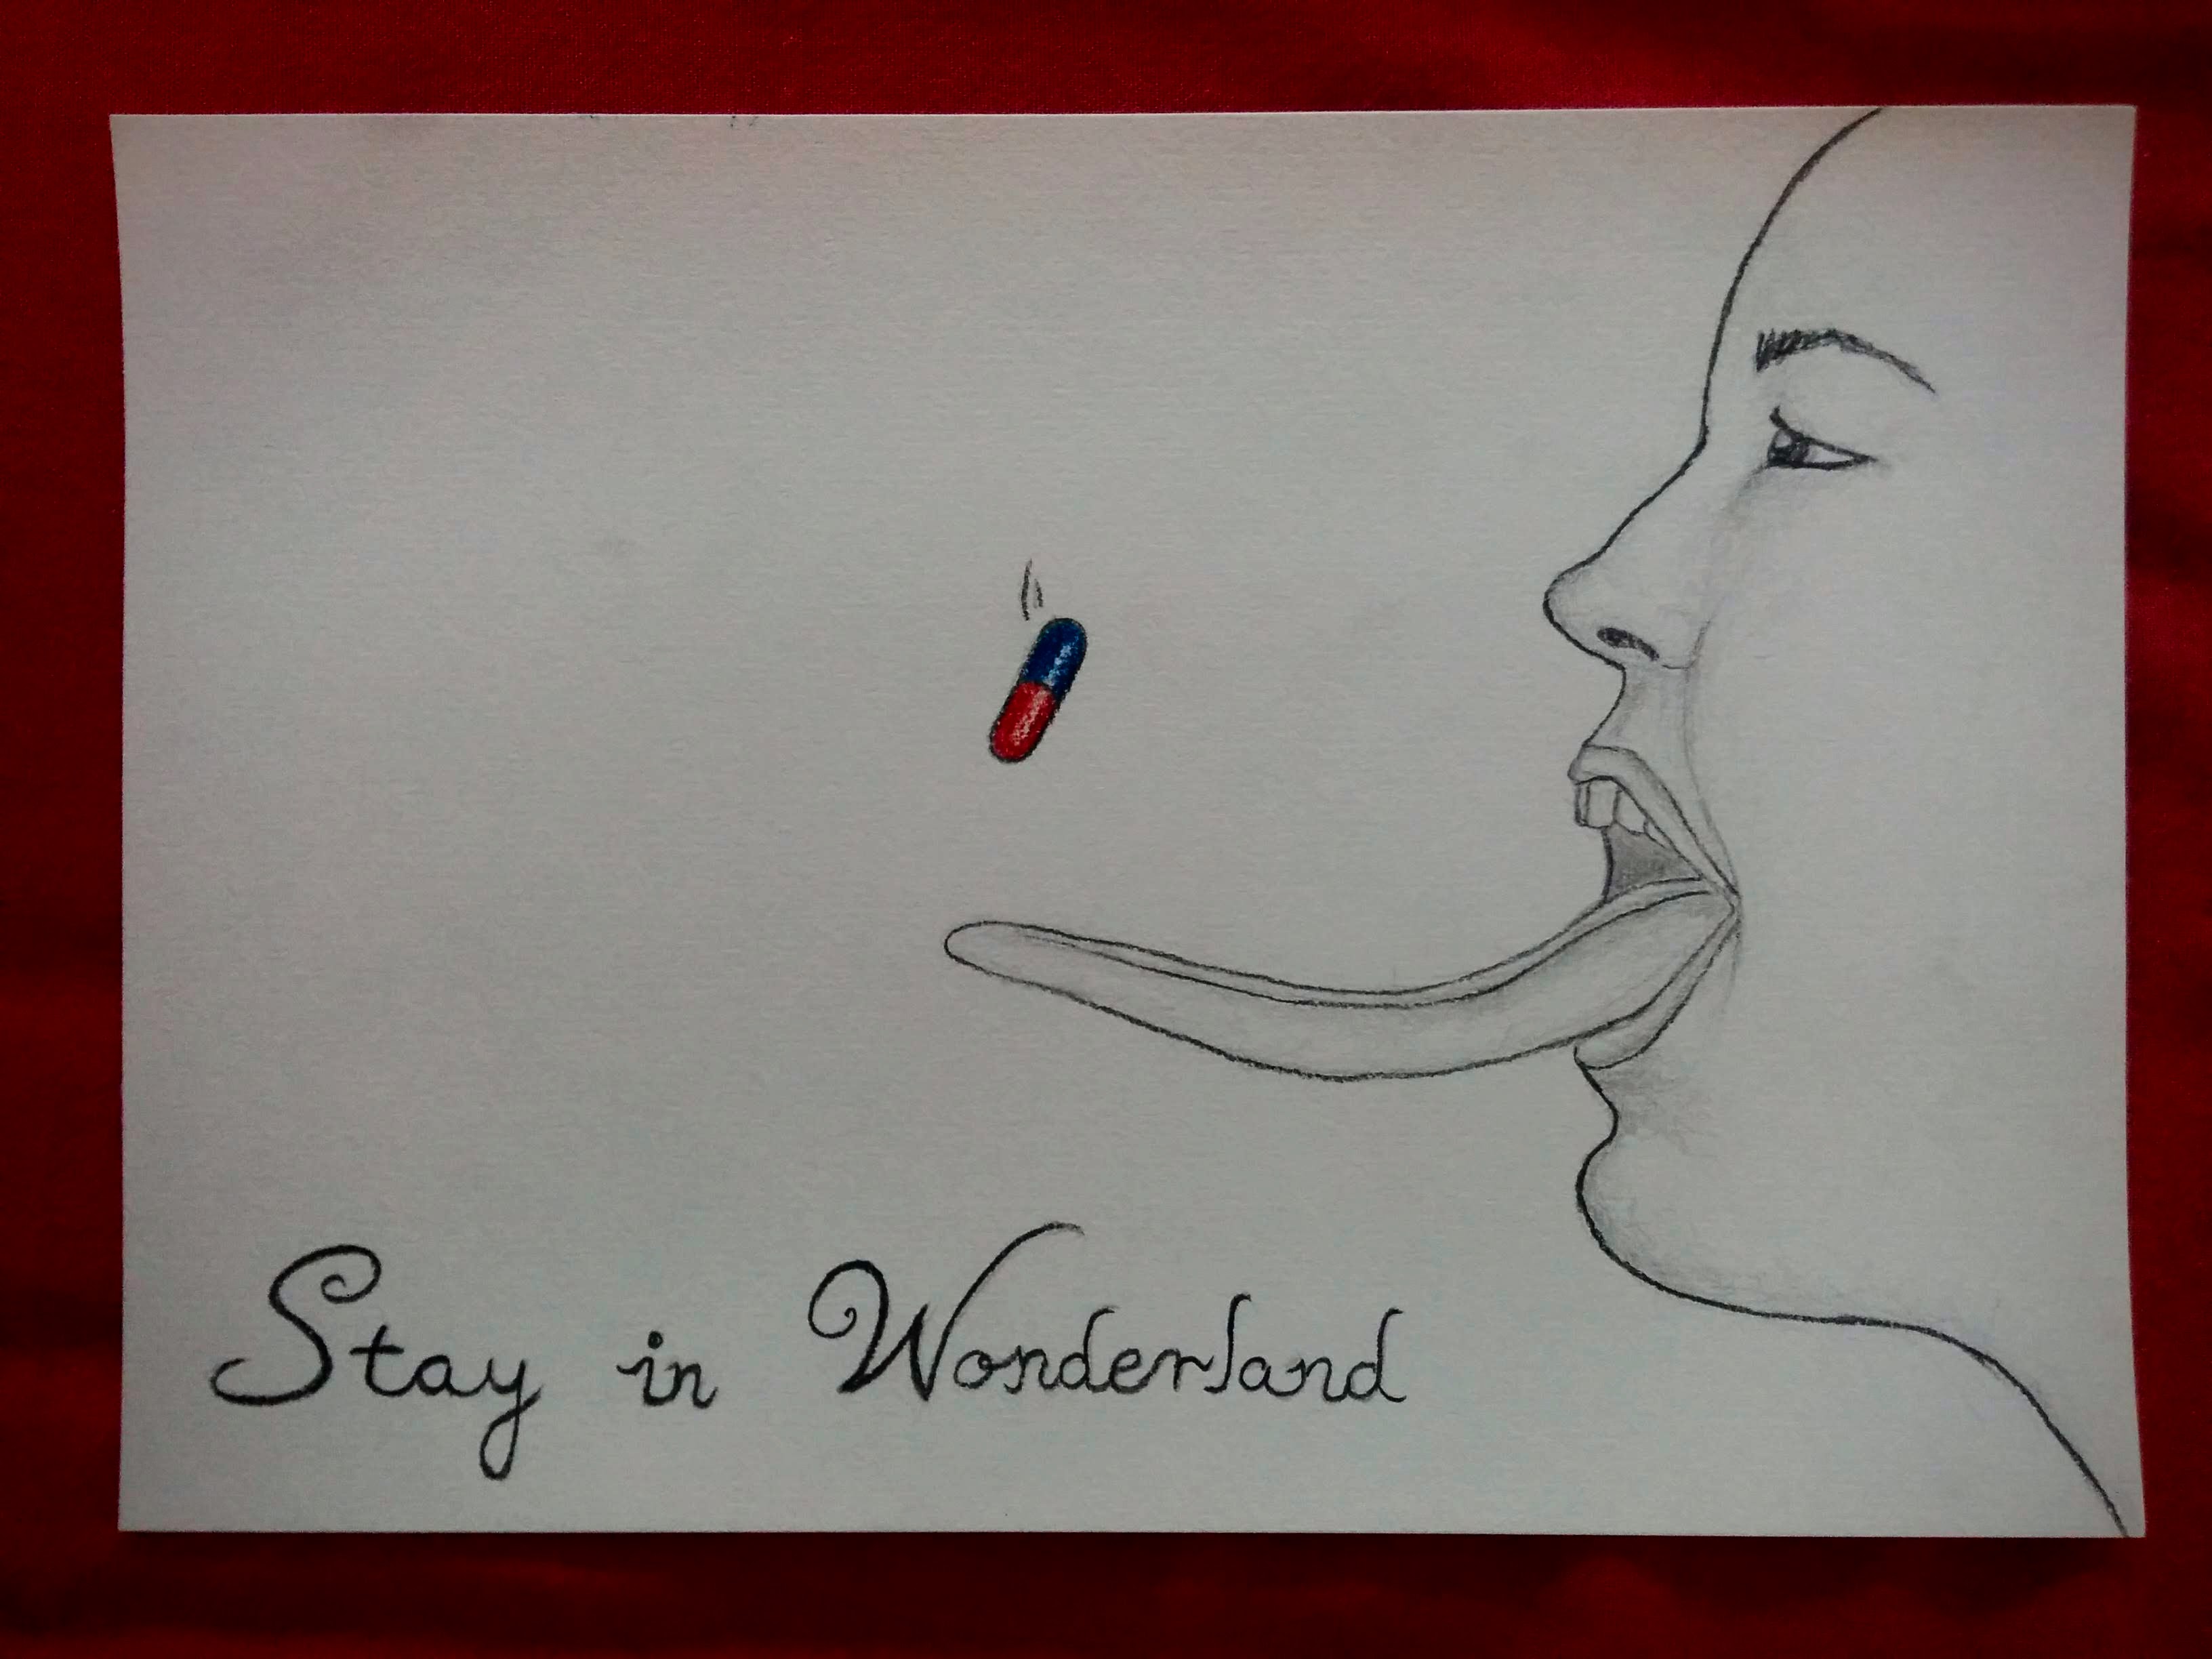 Stay in Wonderland